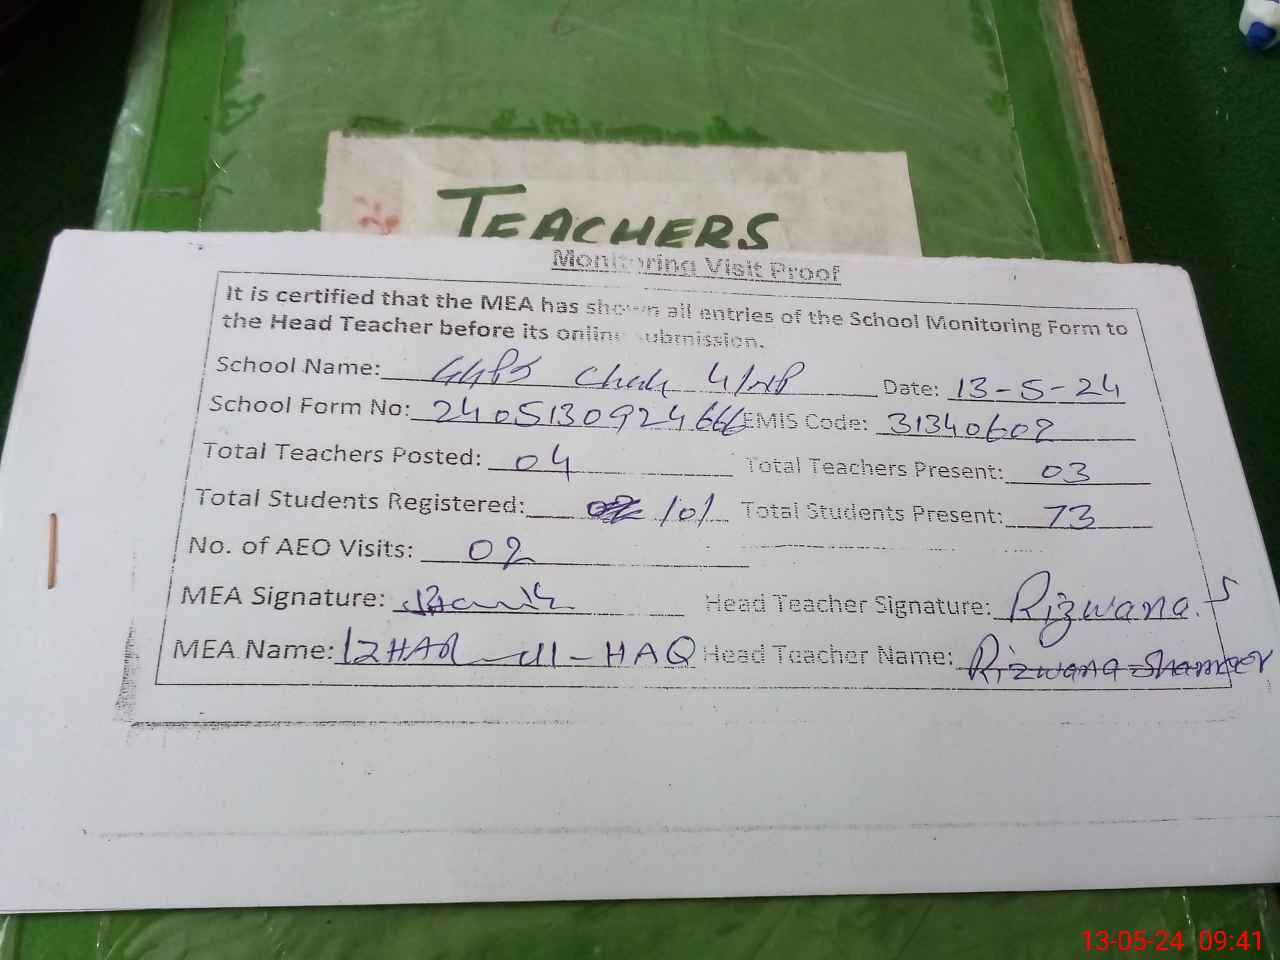 TEACHERS
Monitoring Visit Proof
It is certified that the MEA has shown all entries of the School Monitoring Form to
the Head Teacher before its online submission.
School Name: GGPS Chak 4/NP Date: 13-5-24
School Form No: 2405130924666 EMIS Code: 31340602
Total Teachers Posted: 04 Total Teachers Present: 03
Total Students Registered: 101 Total Students Present: 73
No. of AEO Visits: 02
MEA Signature: Head Teacher Signature: Rizwana.S
MEA Name: IZHAR-ul-HAQ Head Teacher Name: Rizwana
13-05-24 09:41